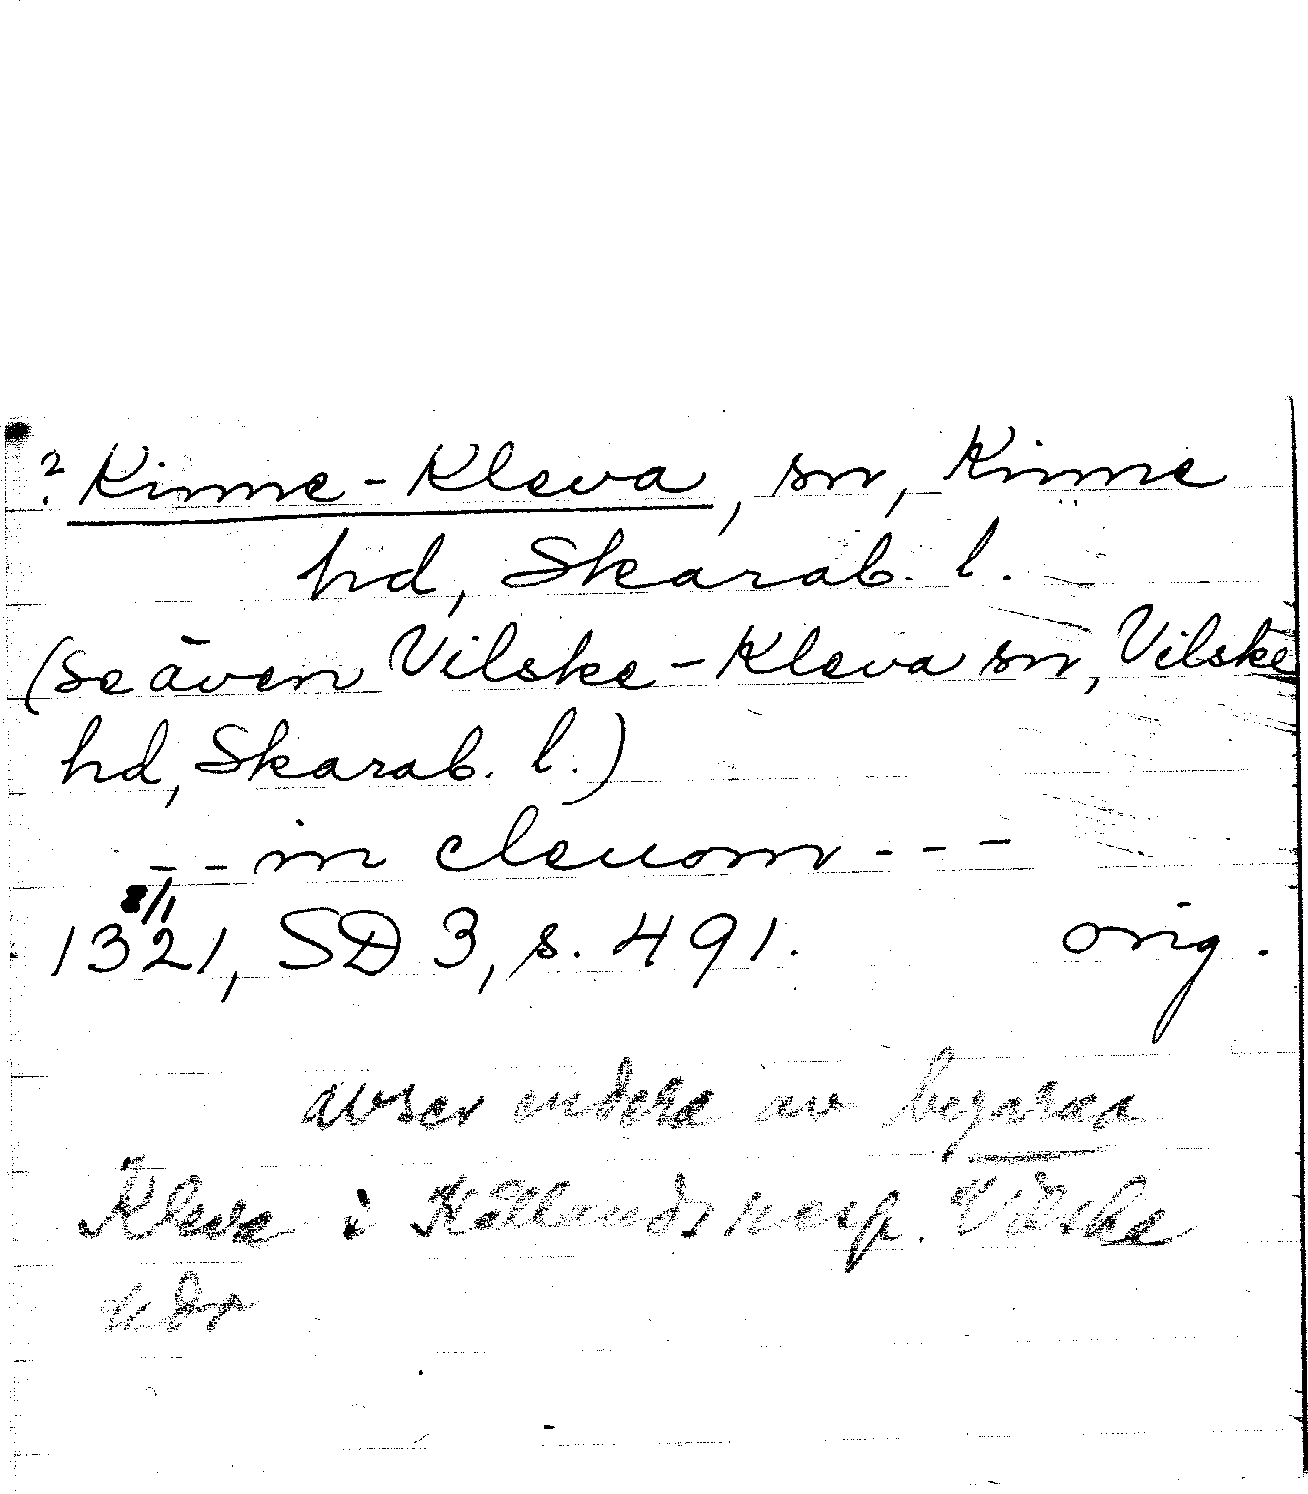 ? Kinne-Kleva, sn, Kinne
hd, Skarab. l.
(se även Vilske-Kleva sn, Vilske
hd, Skarab. l.)
-- in cleuom ---
8/1
1321, SD 3, s. 491. orig.
avser endera av byarna
Kleva i Kållands resp. Vilske
hdr